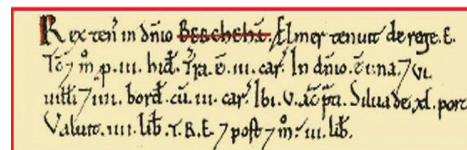 Rex ten̄ in dn̄io BESCHEHĀ. Ælmer tenuit de rege. E.
Tc̄ ⁊ m̊ p. iii. hid̄. Tr̄a. ē. iii. car̄. In dn̄io. ē una. ⁊ vi.
uilli ⁊ iiii. bord̄. cū. iii. car̄. Ibi. v. ac̄ p̄ti. Silua de. xl. porc
Valuit. iiii. lib̄. T. R. E. ⁊ post ⁊ m̊. iii. lib̄.